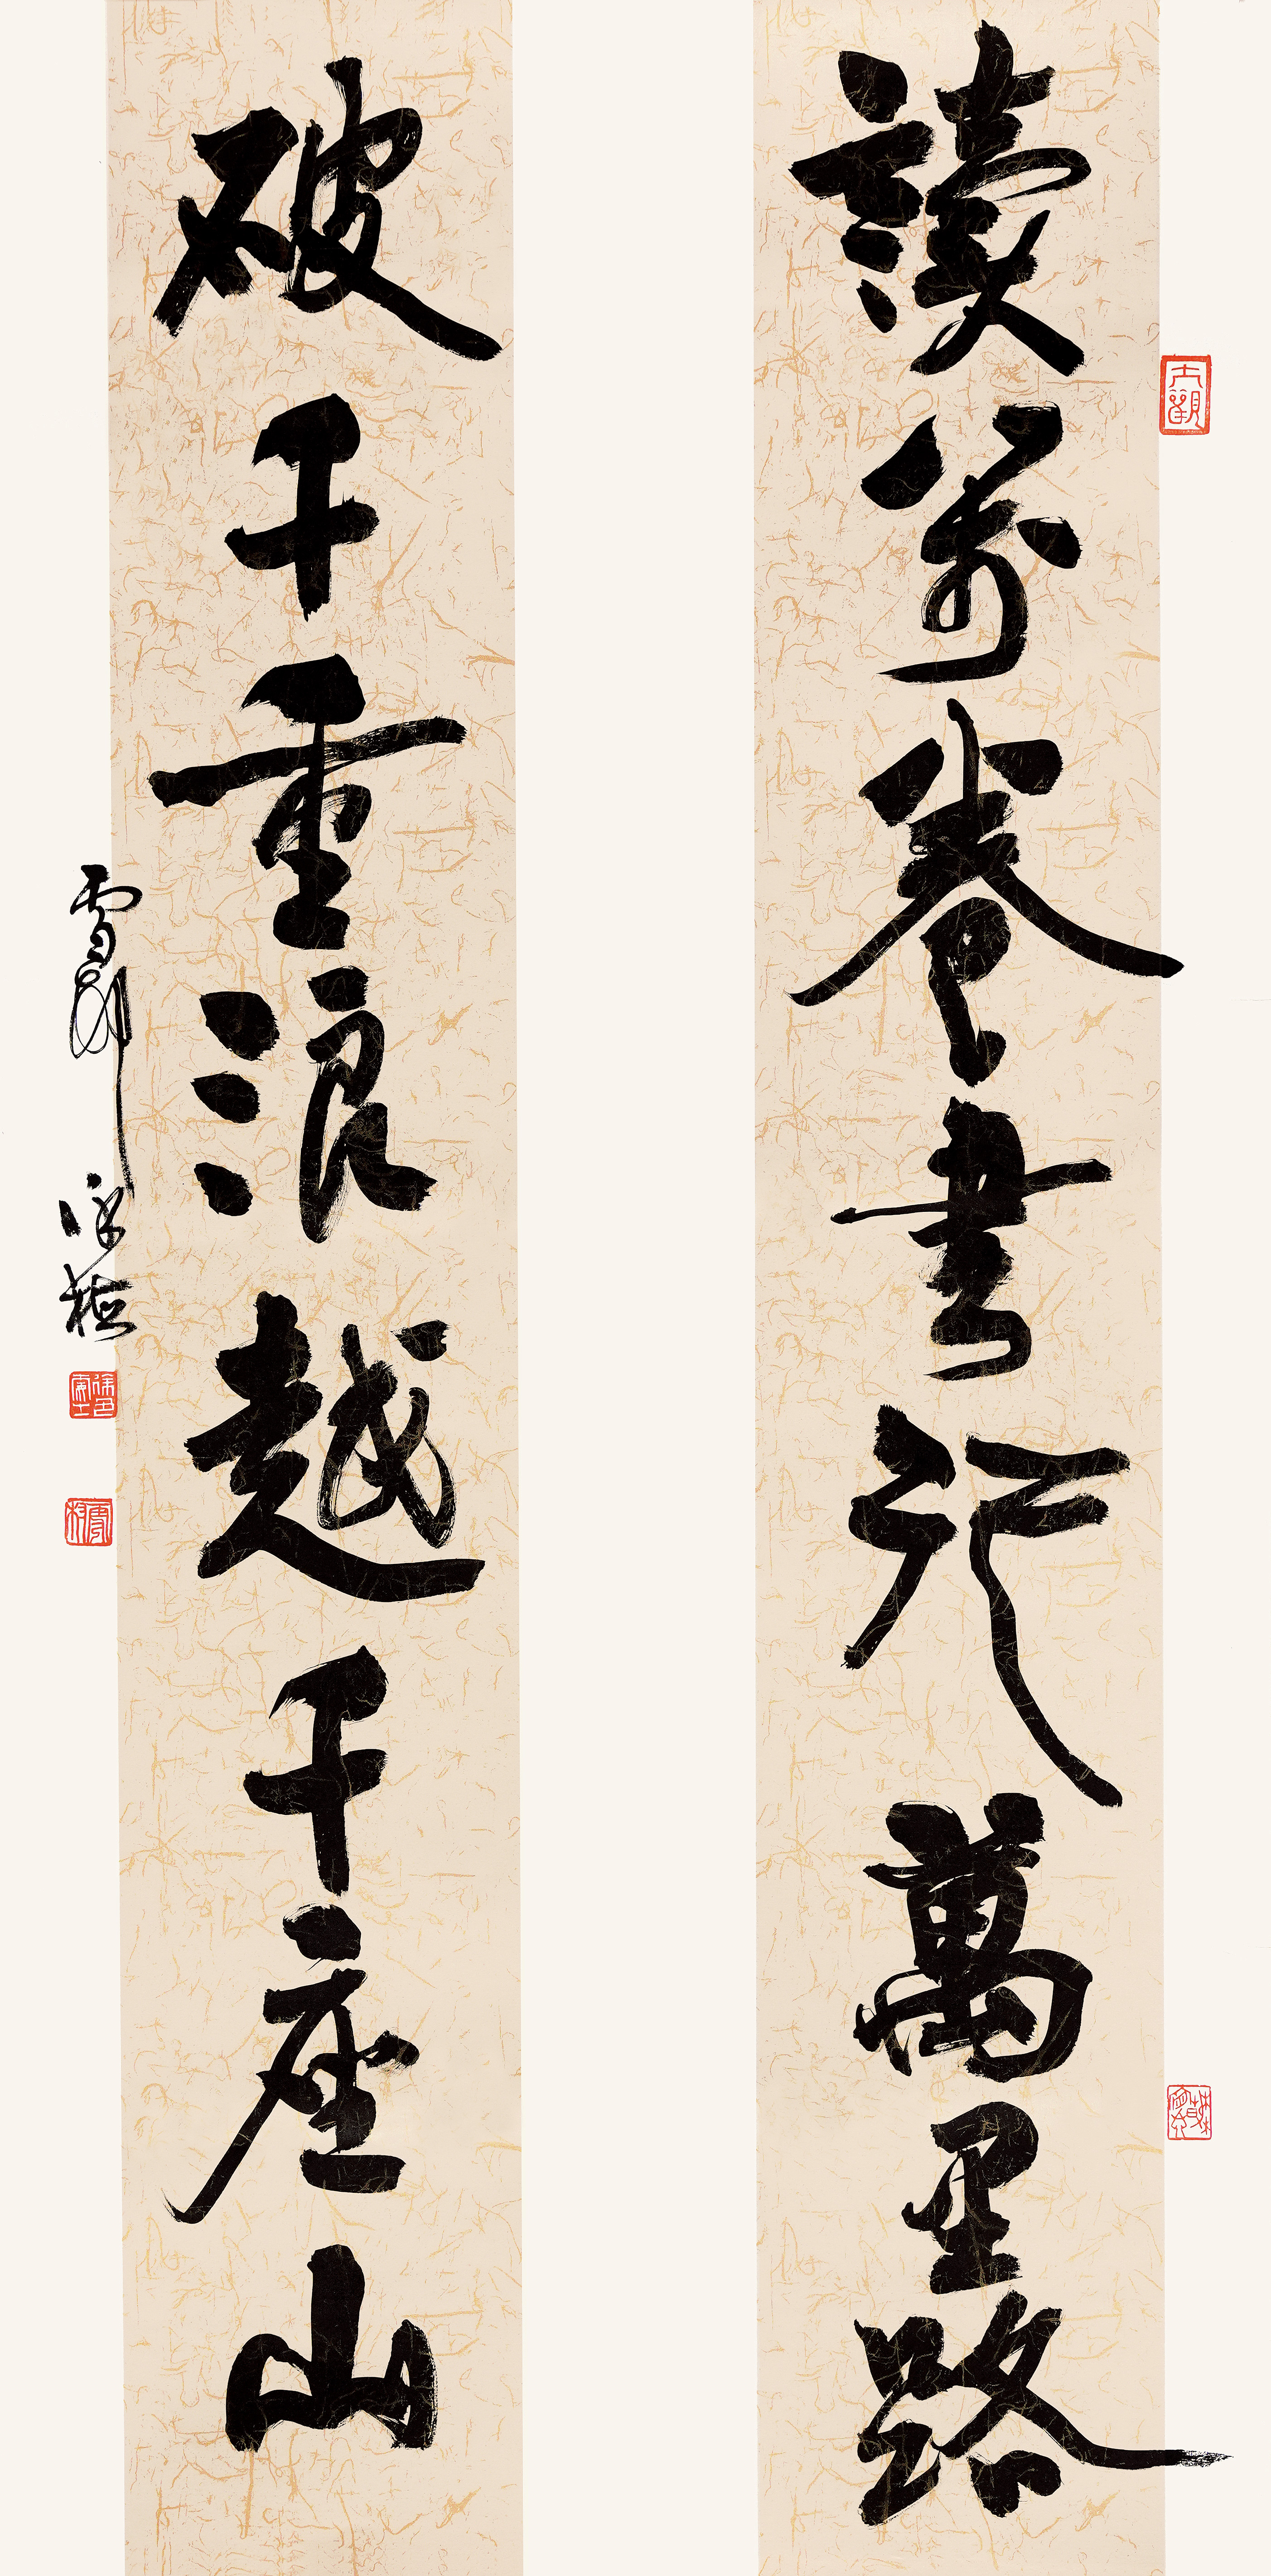 讀萬卷書行萬里路
破千重浪越千座山